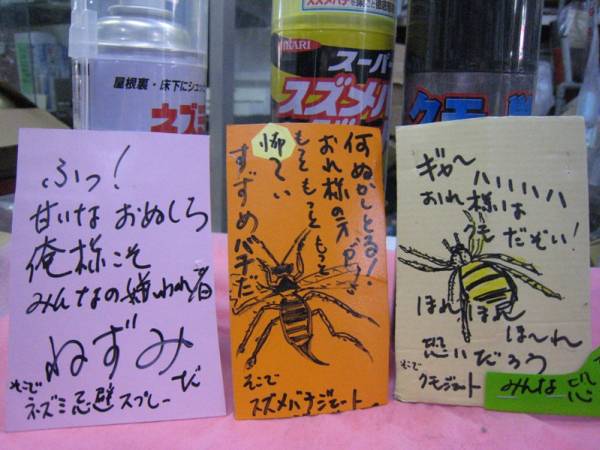 屋根裏・床下にシュッ
ネズミ
スズメバチを巣ごと
スーパー
スズメバチ
クモの巣
ふっ!
甘いな おぬしら
俺様こそ
みんなの嫌われ者
ねずみ
だ
そこで
ネズミ忌避スプレー
何ぬかしとる!
おれ様の方が
もっともっともっと
怖〜い
すずめバチだ
そこで
スズメバチジェット
ギャ〜ハハハハハ
おれ様は
クモ だぞい!
ほれ ほれ ほ〜れ
恐いだろう
そこで
クモジェット
みんな